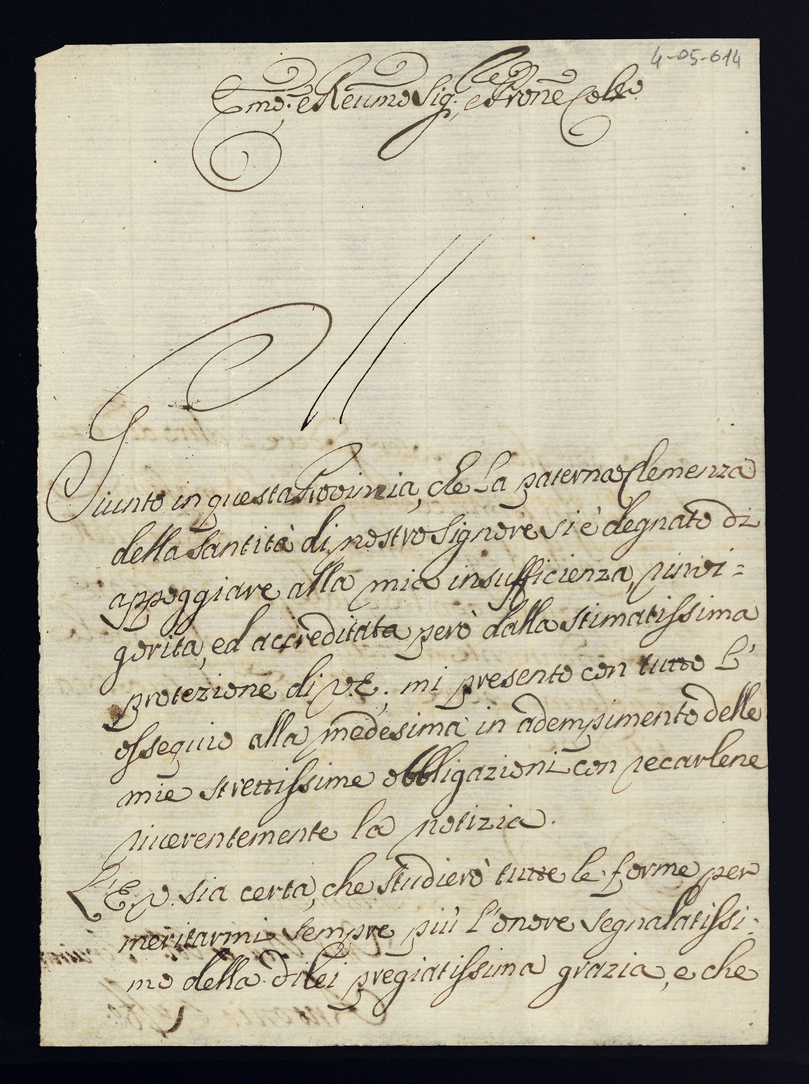 4-05-614
Emo: e Reumo Sig:, e Prone Colto
Giunto in questa Provinia, che La paterna Clemenza
della Santità di nostro Signore si è degnato di
appoggiare alla mia insufficienza, rinvi=
gorita, ed accreditata però dalla stimatissima
protezione di V.E. mi presento con tutto L'
ossequio alla medesima in adempimento delle
mie strettissime obbligazioni con recarlene
riverentemente la notizia.
L'E.V. sia certa, che studierò tutte le forme per
meritarmi sempre più l'onore segnalatissi:
mo della di lei pregiatissima grazia, e che